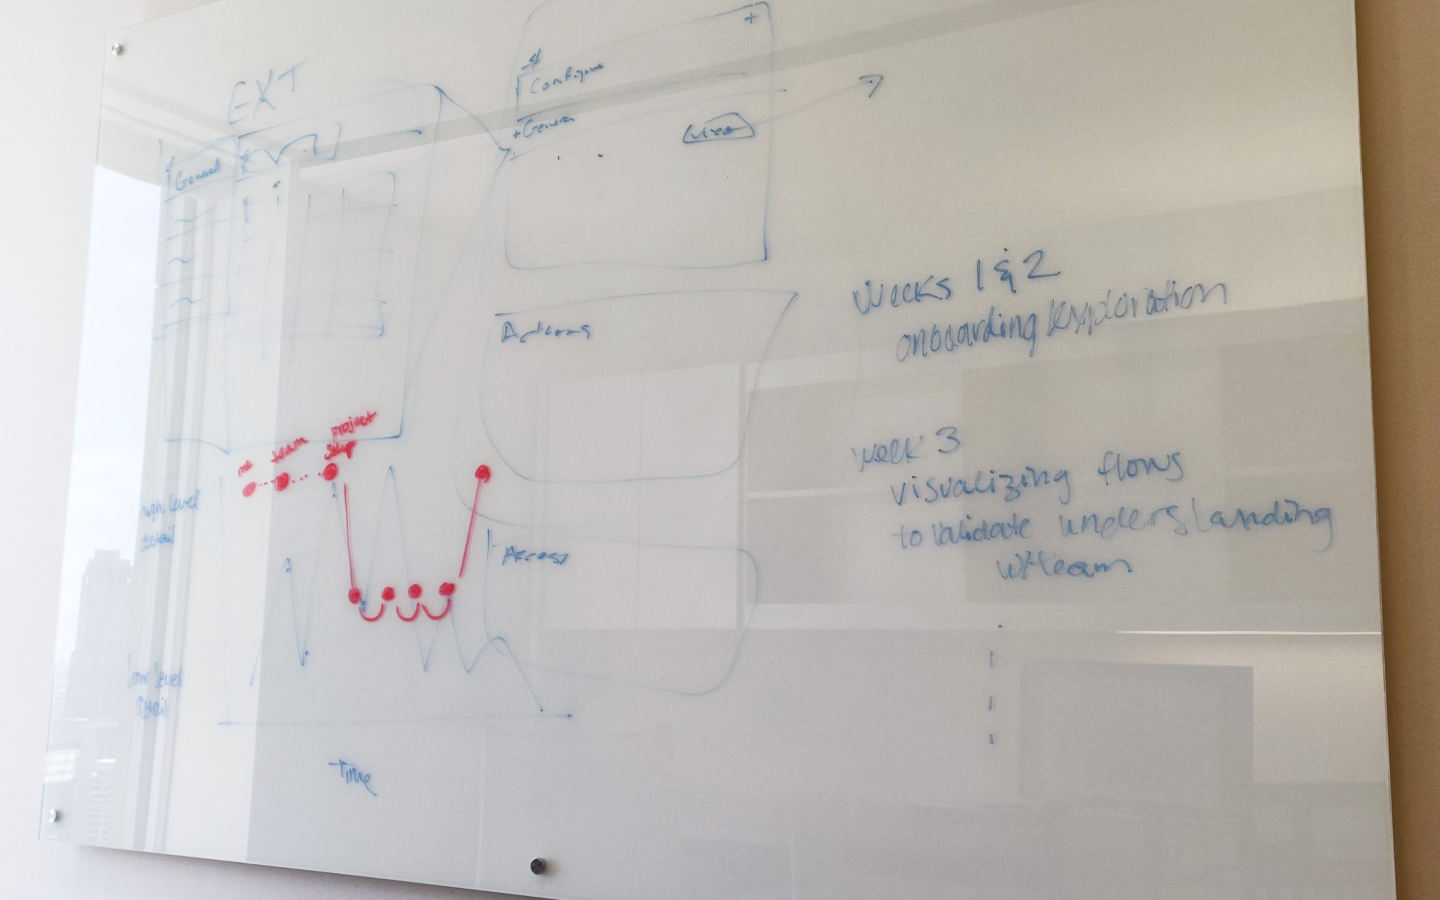 EXT
General
Configure
+ General
Actions
Access
me
team
project
setup
high level
detail
low level
detail
Time
Weeks 1 & 2
onboarding / exploration
week 3
visualizing flows
to validate understanding
w/ team